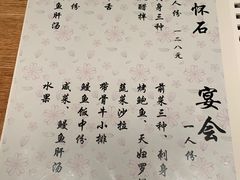 怀石
人份 一二八元
身三种
醋拌
舌
鱼肝汤
宴会
一人份
前菜三种、刺身
烤鲍鱼、天妇罗
蔬菜沙拉
带骨牛小排
鳗鱼饭中份
咸菜、鳗鱼肝汤
水果